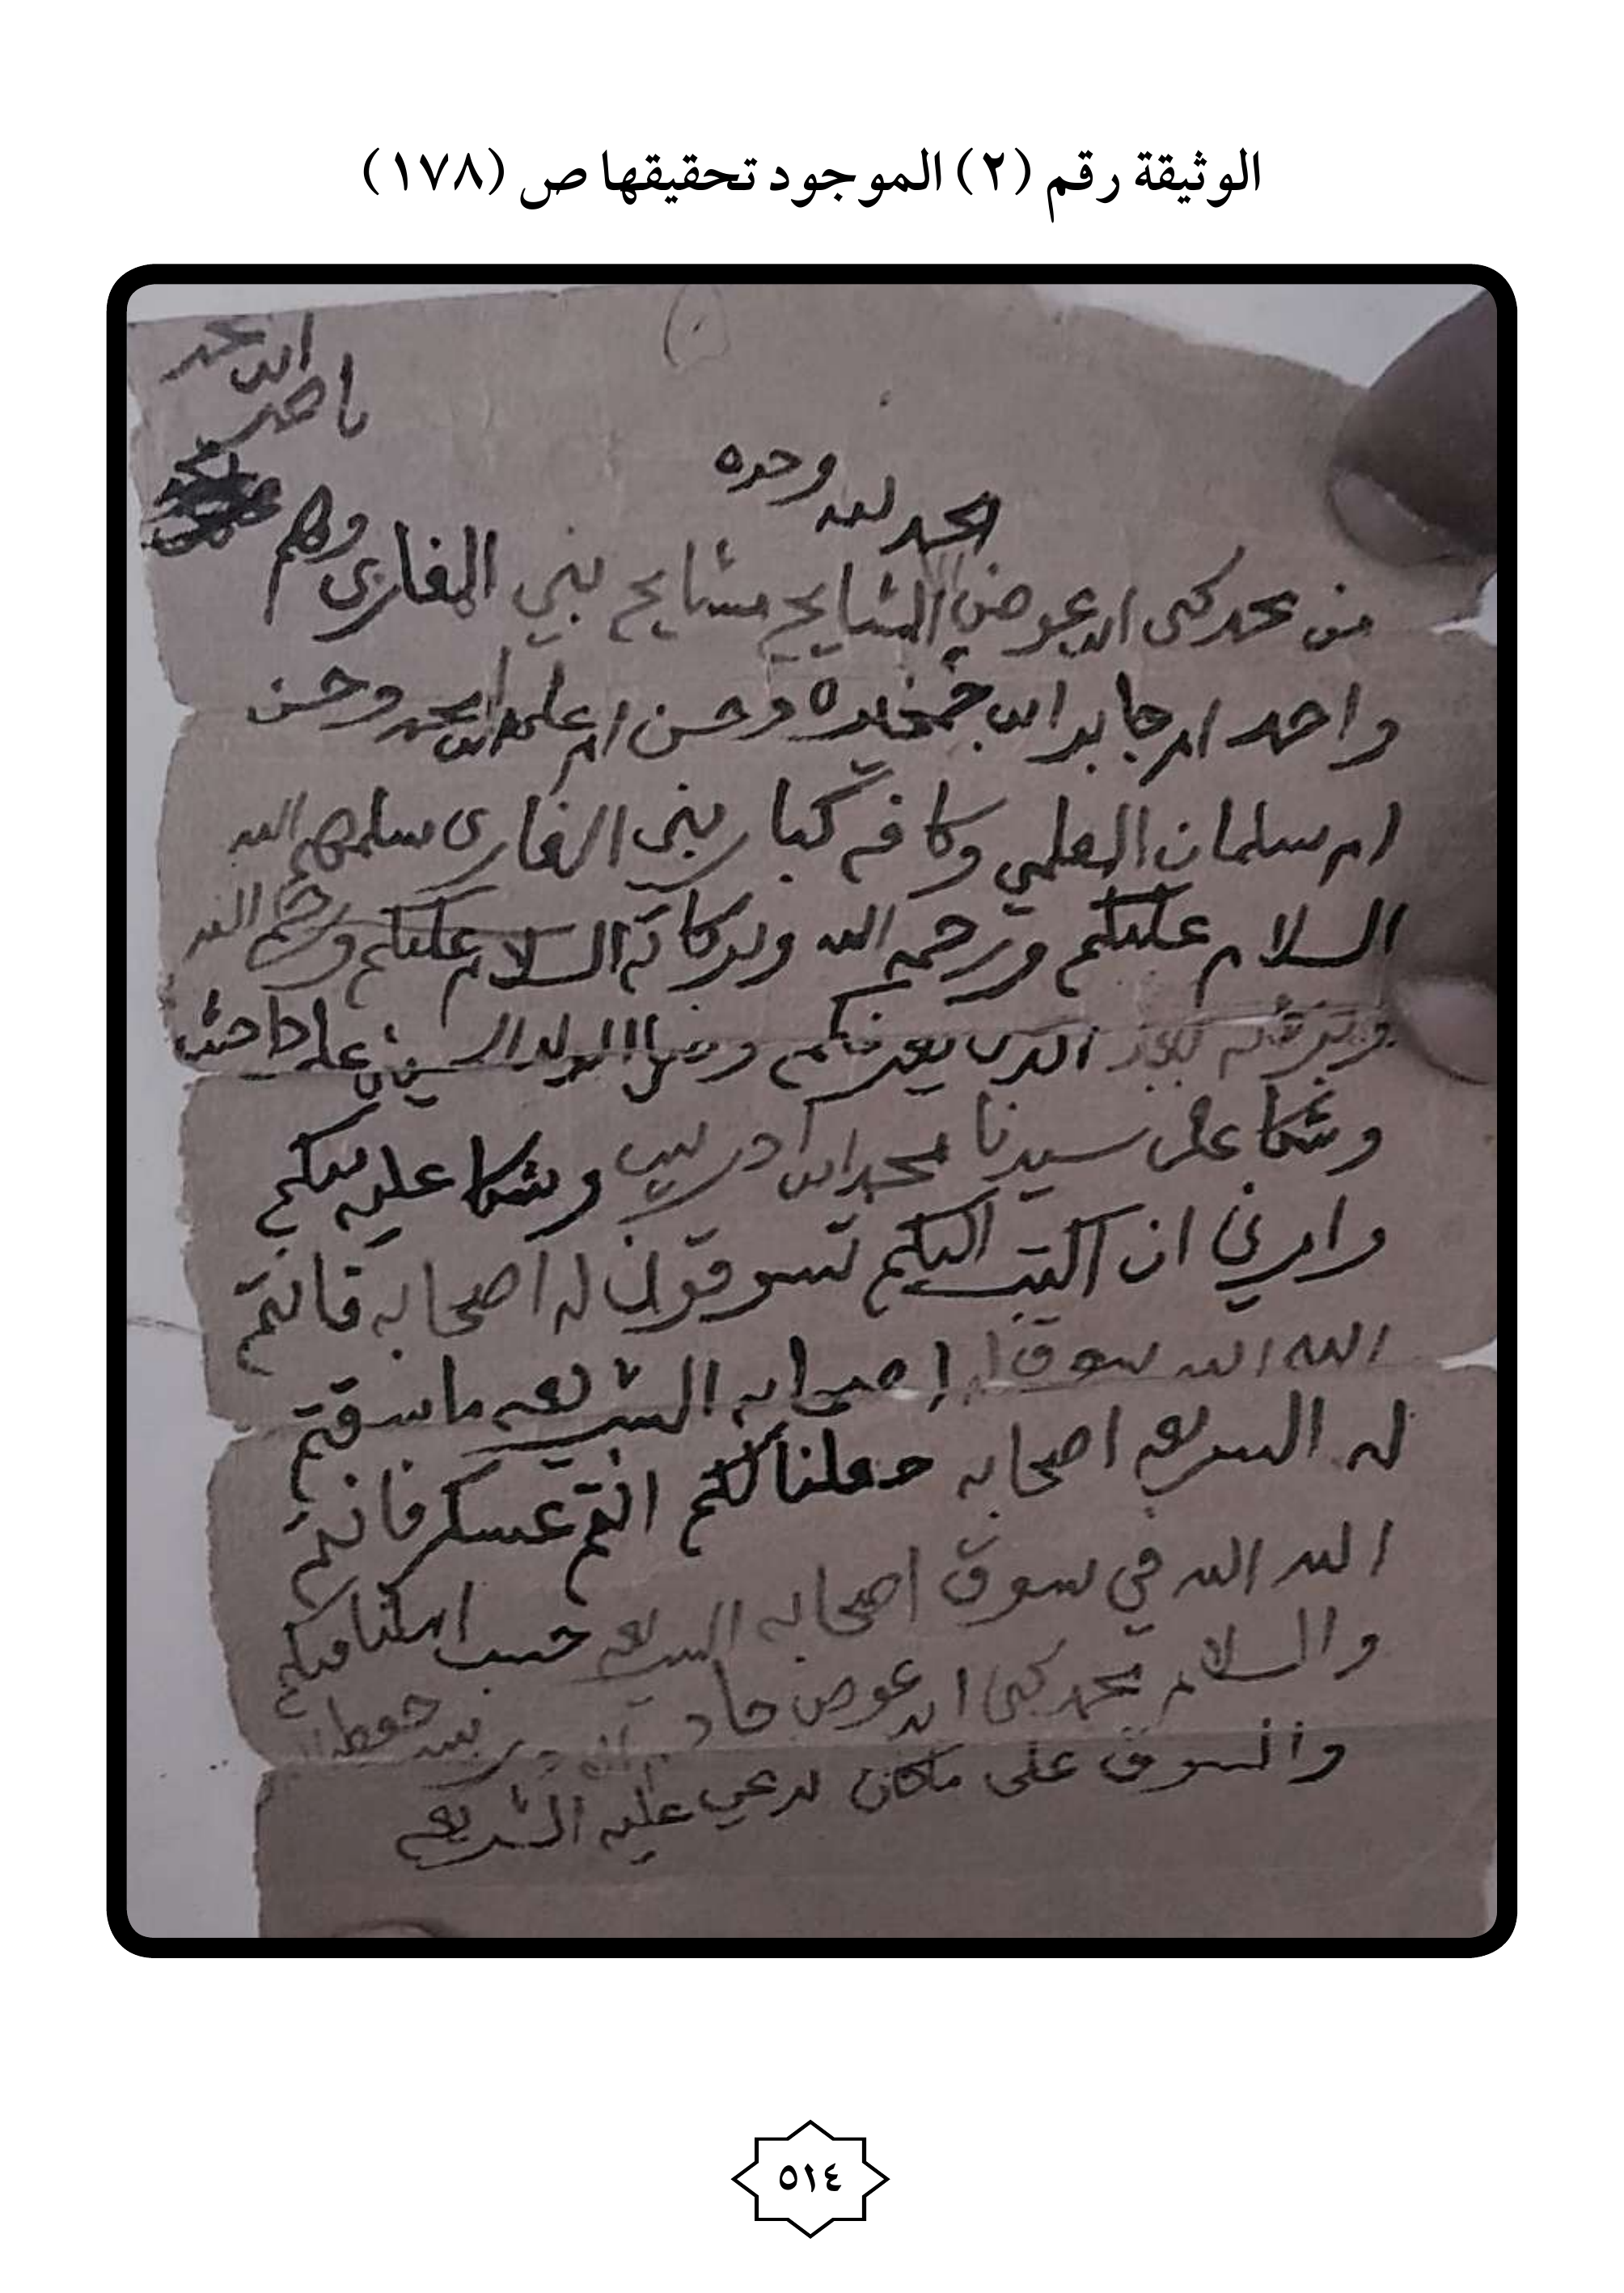 الوثيقة رقم (٢) الموجود تحقيقها ص (١٧٨)
ناصر ابن محمد
الحمد لله وحده
من محمد يحيى ابن عوض المشايخ مشايخ بني الغازي وهم
واحمد ابن جابر ابن وحسن ابن علي ابن محمد وحسن
ابن سلمان العلمي وكافة كبار بني الغازي سلمهم الله
السلام عليكم ورحمه الله وبركاته السلام عليكم ورحمة الله
وبركاته بعد الذي يعرفكم علينا
وشكا على سيدنا محمد ابن ادريس وشكا عليه منكم
وامرني ان اكتب اليكم تسوقون له اصحابه فانتم
الله الله سوق اصحابه الشريعه ما سقتم
له الشريعه اصحابه جعلنا لكم انتم عسكر فانتم
الله الله في سوق اصحابه الشريعه حسب املنا فيكم
والسلام محمد يحيى ابن عوض
والسوق على ماكان يدعي عليه الشريعه
٥١٤